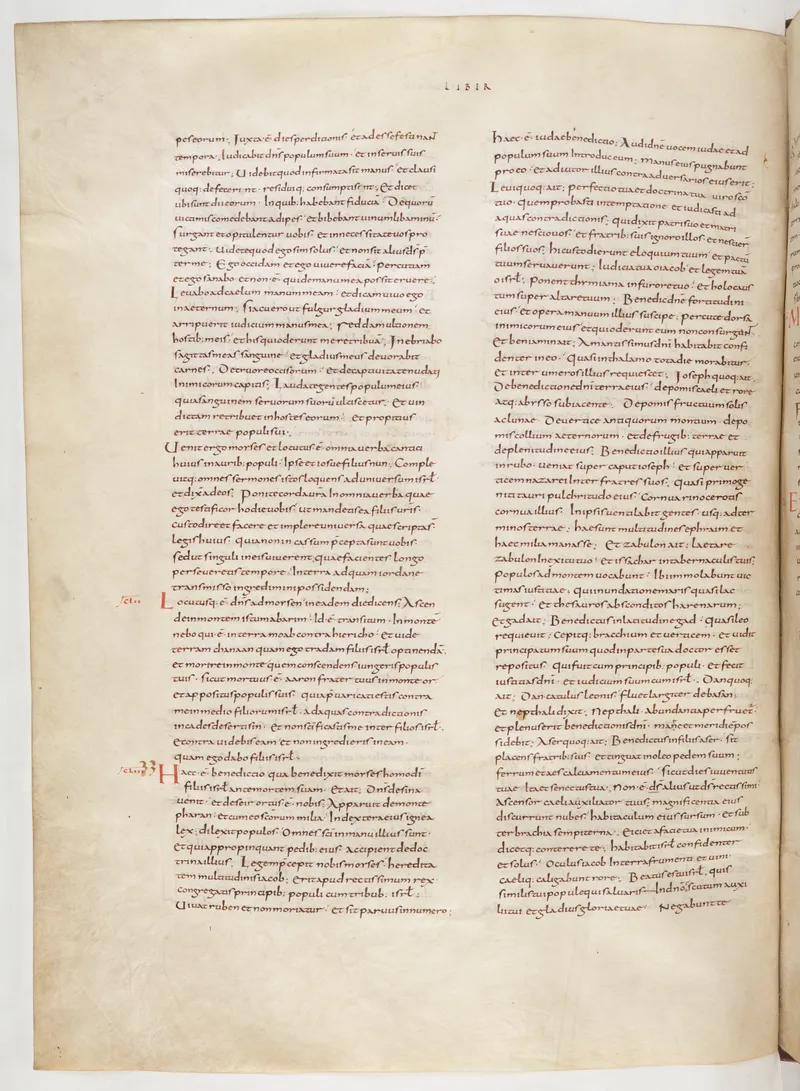 LIBER
pes eorum; Juxta ē dies perditionis et adesse festinant
tempora; Iudicabit dn̄s populum suum et in servis suis
miserebitur; Videbit quod infirmata sit manus et clausi
quoq: defecerint residuiq; consumpti sint; Et dicet
ubi sunt dii eorum In quib; habebant fiduciam De quorū
victimis comedebant adipes et bibebant vinum libaminū
Surgant et opitulentur vobis et in necessitate vos pro
tegant; Videte quod ego sim solus et non sit alius d̄s p̄
ter me; Ego occidam et ego vivere faciā percutiam
et ego sanabo et non ē qui de manu mea possit eruere;
Levabo ad caelum manum meam et dicam vivo ego
in aeternum; Si acuero ut fulgur gladium meum et
arripuerit iudicium manus mea; Reddam ultionem
hostib; meis et his qui oderunt me retribuā; Inebriabo
sagittas meas sanguine et gladius meus devorabit
carnes; De cruore occisorum et de captivitate nudati
Inimicorum capitis; Laudate gentes populum eius
quia sanguinem servorum suorū ulciscetur; Et vin
dictam retribuet in hostes eorum et propitius
erit terrae populi sui;
Venit ergo moyses et locutus ē omnia verba cantici
huius in aurib; populi Ipse et iosue filius nun; Comple
vitq; omnes sermones istos loquens ad universum isrl̄
et dixit ad eos; Ponite corda vr̄a In omnia verba quae
ego testificor hodie vobis ut mandetis ea filiis vris̄
custodire et facere et implere universa quae scripta s̄
legis huius quia non incassum p̄cepta sunt vobis
sed ut singuli in eis viverent quae facientes longo
perseveretis tempore In terra ad quam iordane
transmisso ingredimini possidendam;
Locutusq; ē dn̄s ad moysen in eadem die dicens; Ascen
de in montem istum abarim Id ē transituum In montē
nebo qui ē in terra moab contra hiericho et vide
terram chanaan quam ego tradam filiis isrl̄ optinendā
et morire in monte quem conscendens iungeris populis
tuis sicut mortuus ē aaron frater tuus in monte or
et appositus populis suis quia p̄varicati estis contra
me in medio filiorum isrl̄ Ad aquas contradictionis
in cades deserti sin et non sc̄ificastis me inter filios isrl̄
Et contra videbis eam et non ingredieris in eam
quam ego dabo filiis isrl̄
33
Haec ē benedictio qua benedixit moyses homo dī
filiis isrl̄ ante mortem suam Et ait; Dn̄s de sina
venit et de seir ortus ē nobis; Apparuit de monte
pharan et cum eo sc̄orum milia In dextera eius ignea
lex; dilexit populos Omnes sc̄i in manu illius sunt
et qui appropinquant pedib; eius Accipient de doc
trina illius; Legem p̄cepit nobis moyses heredita
tem multitudinis iacob; Erit apud rectissimum rex
congregatis principib; populi cum tribub; isrl̄
Vivat ruben et non moriatur et sit parvus in numero;
Haec ē iudae benedictio; Audi dn̄e vocem iudae et ad
populum suum Introduc eum; manus eius pugnabunt
pro eo et adiutor illius contra adversarios eius erit;
Levi quoq; ait; perfectio tua et doctrina tua viro sc̄o
tuo quem probasti in temptatione et iudicasti ad
aquas contradictionis qui dixit patri suo et matri
suae nescio vos et fratrib; suis ignoro illos et nesciert̄
filios suos; hi custodierunt eloquium tuum et pactū
tuum servaverunt; Iudicia tua o iacob et legem tuā
o isrl̄ ponent thymiama in furore tuo et holocaus
tum super altare tuum; Benedic dn̄e fortitudini
eius et opera manuum illius suscipe; percute dorsa
inimicorum eius et qui oderunt eum non consurgant
Et beniamin ait; Amantissimus dn̄i habitabit confi
denter in eo Quasi in thalamo tota die morabitur
et inter umeros illius requiescet; Joseph quoq; ait
De benedictione dn̄i terra eius de pomis caeli et rore
Atq; abysso subiacente De pomis fructuum solis
ac lunae De vertice antiquorum montium de po
mis collium aeternorum et de frugib; terrae et
de plenitudine eius Benedictio illius qui apparuit
in rubo veniat super caput ioseph et super ver
ticem nazarei inter fratres suos Quasi primoge
niti tauri pulchritudo eius Cornua rinocerotis
cornua illius In ipsis ventilabit gentes usq; ad ter
minos terrae; hae sunt multitudines ephraim et
haec milia manasse; Et zabulon ait; laetare
zabulon In exitu tuo et issachar in tabernaculis tuis
populos ad montem vocabunt Ibi immolabunt vic
timas iustitiae; qui inundationem maris quasi lac
sugent et thesauros absconditos harenarum;
Et gad ait; Benedictus in latitudine gad quasi leo
requievit; Cepitq; bracchium et verticem et vidit
principatum suum quod in parte sua doctor esset
repositus qui fuit cum principib; populi et fecit
iustitias dn̄i et iudicium suum cum isrl̄ Dan quoq;
ait; Dan catulus leonis fluet largiter de basan;
et nepthali dixit; Nepthali Abundantia perfruet̄
et plenus erit benedictionis dn̄i mare et meridiē pos
sidebit; Aser quoq; ait; Benedictus in filiis aser sit
placens fratrib; suis et tinguat in oleo pedem suum;
ferrum et aes calciamentum eius sicut dies iuventutis
tuae Ita et senectus tua; Non ē ds̄ alius ut ds̄ rectissimi
Ascensor caeli auxiliator tuus magnificentia eius
discurrunt nubes habitaculum eius sursum et sub
ter brachia sempiterna Eiciet a facie tua inimicum
dicetq; conterere; habitabit isrl̄ confidenter
et solus Oculus iacob In terra frumenti et vini
caeliq; caligabunt rore; Beatus es tu isrl̄ quis
similis tui popule qui salvaris In dn̄o Scutum auxi
lii tui et gladius gloriae tuae Negabunt te